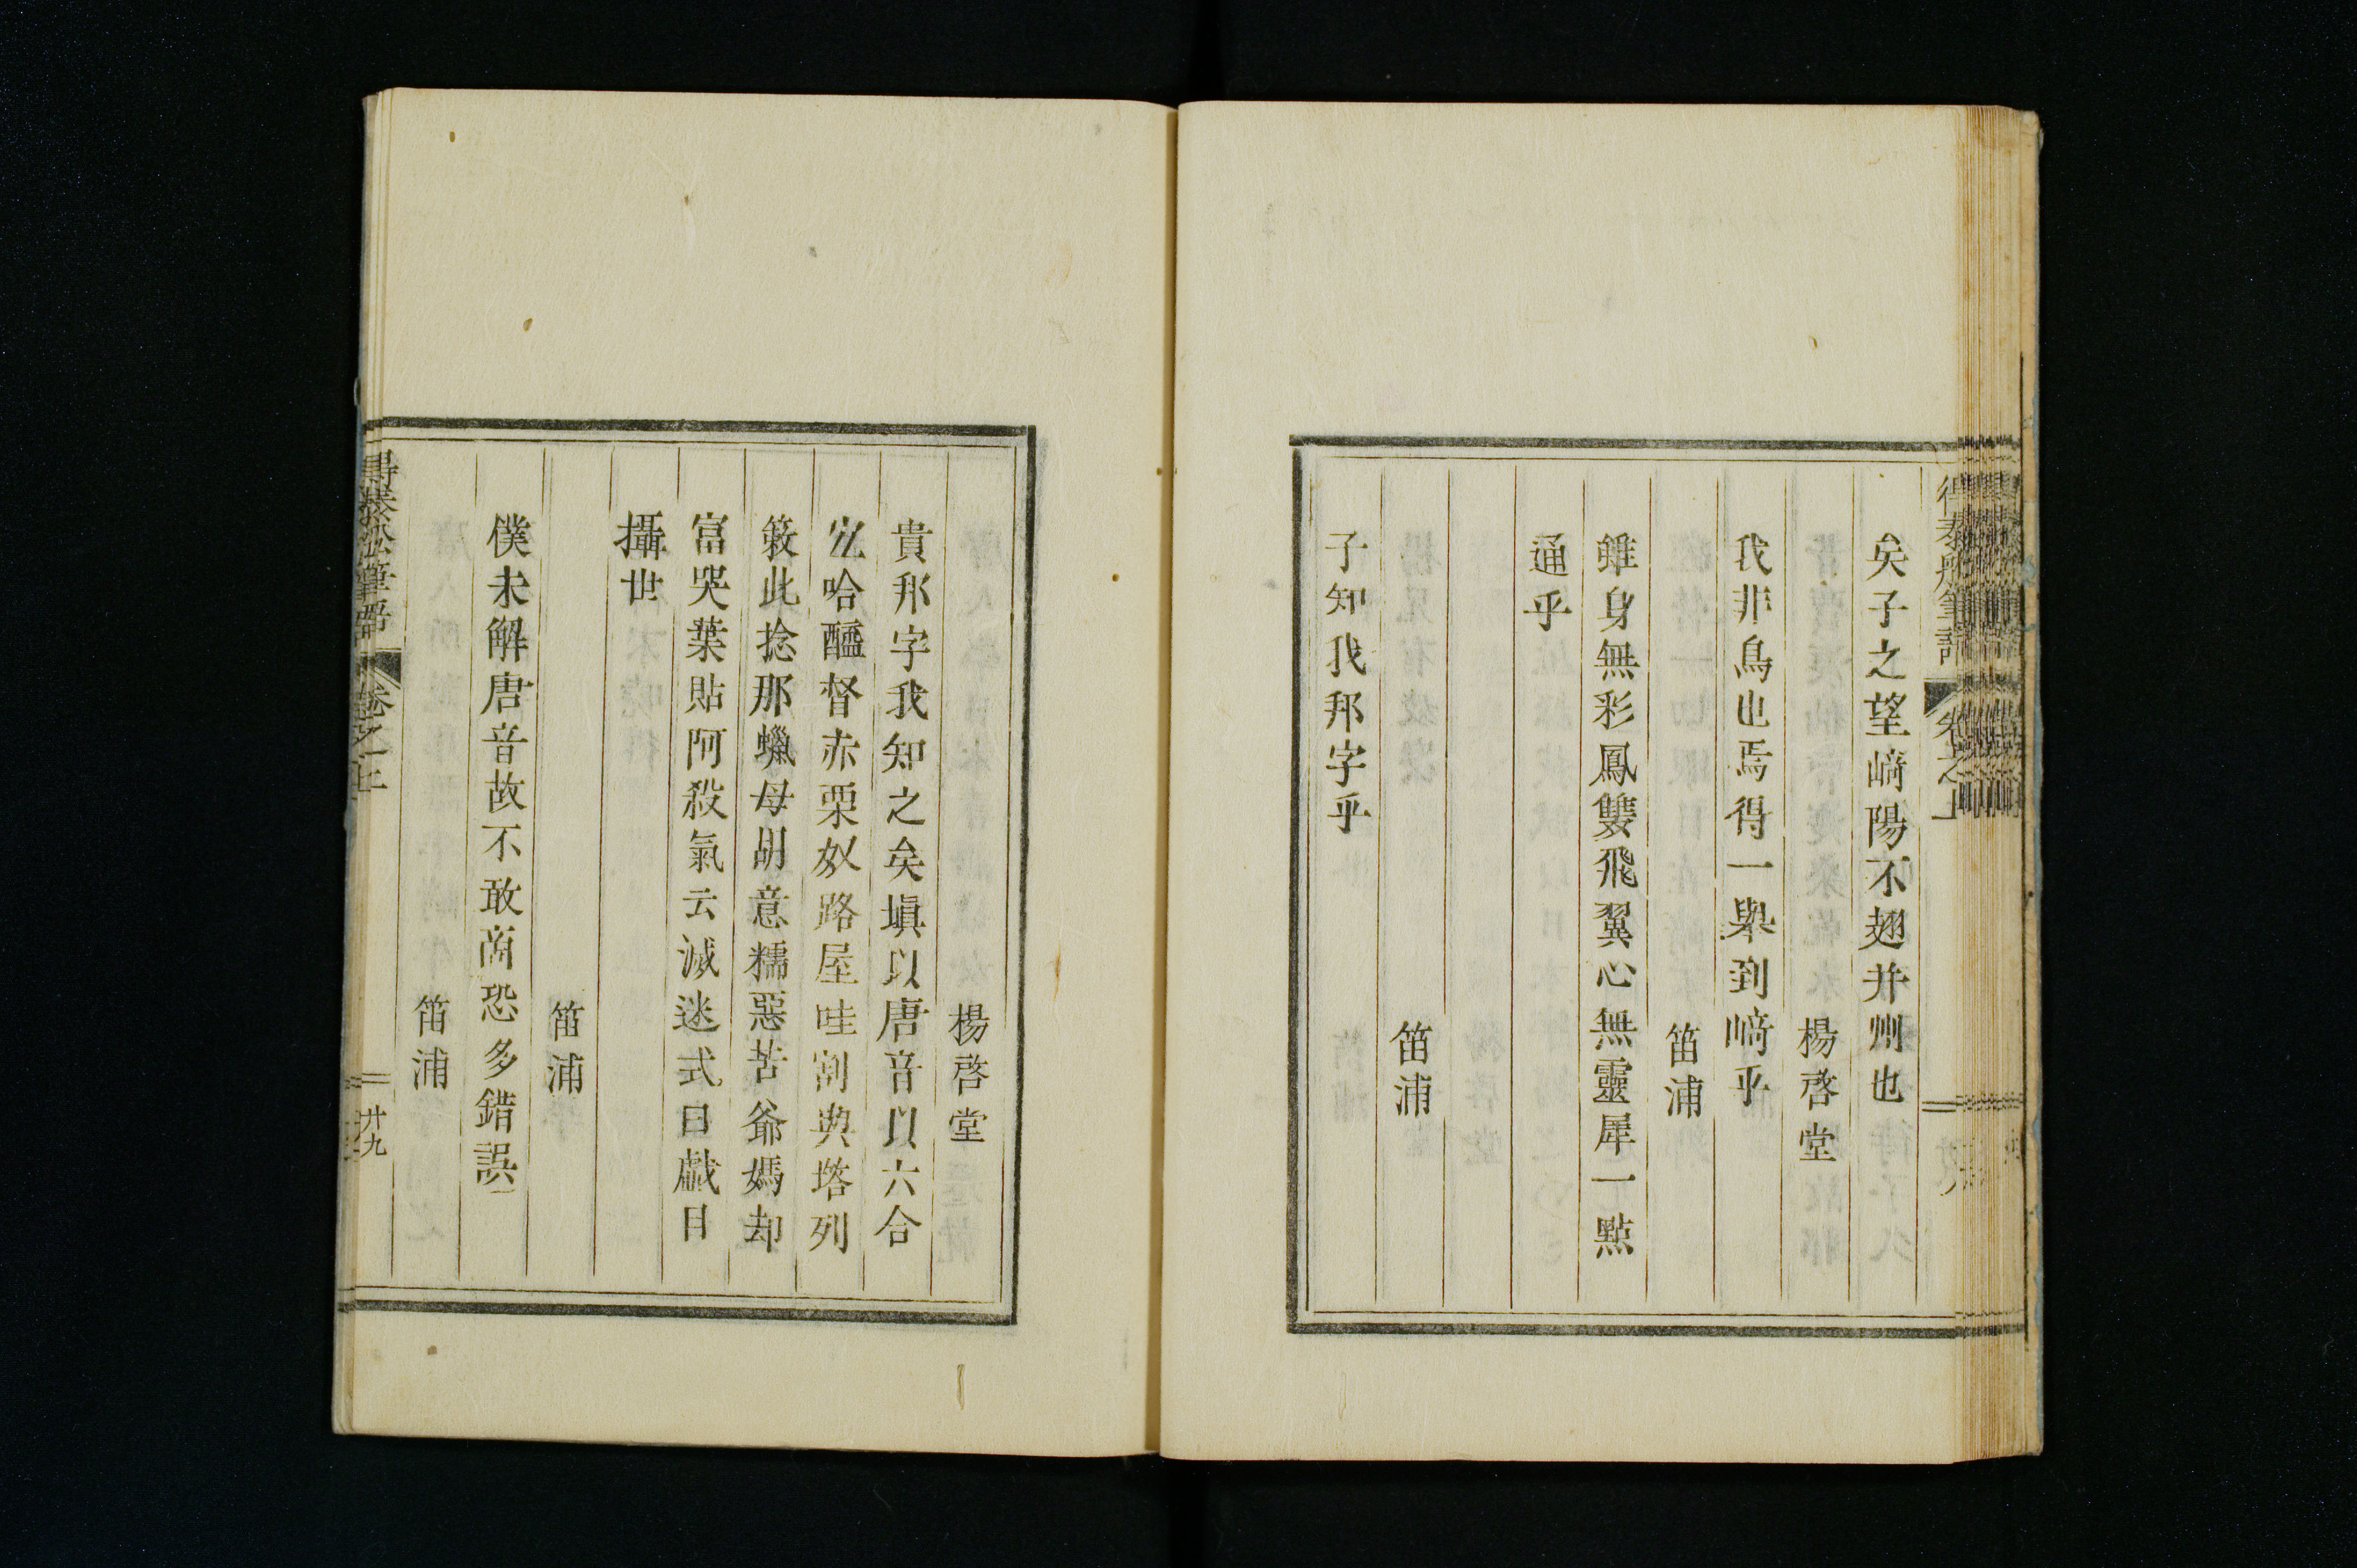 得泰船筆語
卷之上
矣子之望﨑陽不翅并州也
楊啓堂
我非鳥也焉得一舉到﨑乎
笛浦
雖身無彩鳳雙飛翼心無靈犀一點
通乎
笛浦
子知我邦字乎
楊啓堂
貴邦字我知之矣塡以唐音以六合
哈醯督赤栗奴路屋哇割輿塔列
此捻那蠟母胡意糯惡苦爺媽却
富哭葉貼阿殺氣云滅迷式曰戱日
攝世
笛浦
僕未解唐音故不敢商恐多錯誤
笛浦
得泰船筆語
卷之上
廾九